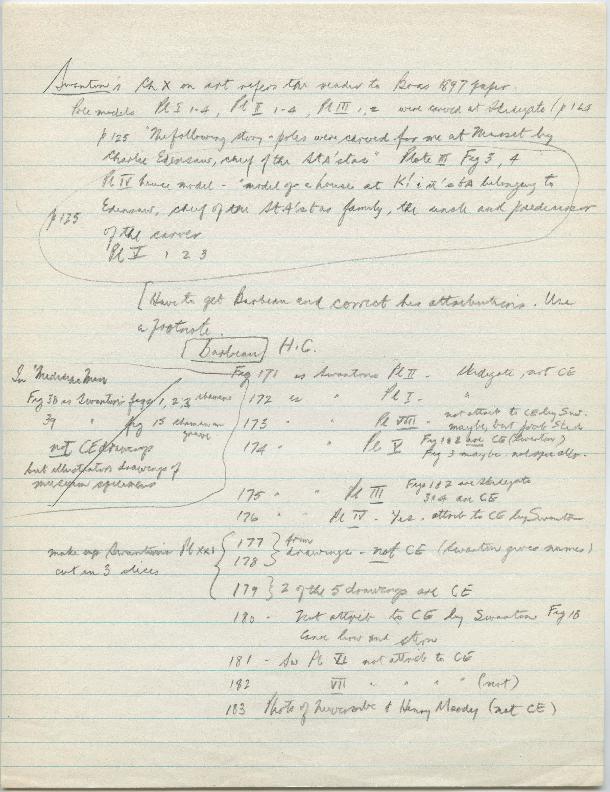 Swanton's Ch X on art refers the reader to Boas 1897 paper.
Pole models Pl I 1-4, Pl II 1-4, Pl III 1, 2 were carved at Skidegate (p 125
p 125 "The following story-poles were carved for me at Masset by
Charlie Edensaw, chief of the StA'stas" Plate III Fig 3, 4
Pl IV house model - "model of a house at belonging to
p 125 Edensaw, chief of the StA'stas family, the uncle and predecessor
of the carver
Pl V 1 2 3
[Have to get Barbeau and correct his attributions. Use
a footnote.
[Barbeau] H.C.
Fig 171 is Swanton's Pl II - Skidegate, not CE
172 is " Pl I - "
173 " " Pl VIII - not attrib to CE by Sw. maybe, but prob Skid
174 " " Pl V Fig 1&2 are CE (Swanton) Fig 3 maybe. not specific.
In "Medicine Men
Fig 38 is Swanton's figs 1, 2, 3
39 " fig 15
not CE drawings
but illustration drawings of
museum specimens
175 " " Pl III Figs 1&2 are Skidegate 3&4 are CE
176 " " Pl IV - Yes. attrib to CE by Swanton
make up Swanton's Pl XXI
cut in 3 slices
177 } from
178 } drawings - not CE (Swanton gives names)
179 } 2 of the 5 drawings are CE
180 - Not attrib to CE by Swanton Fig 18
canoe bow and stern
181 - Sw Pl VI not attrib to CE
182 VII " " " (not)
183 Photo of Newcombe & Henry Moody (not CE)